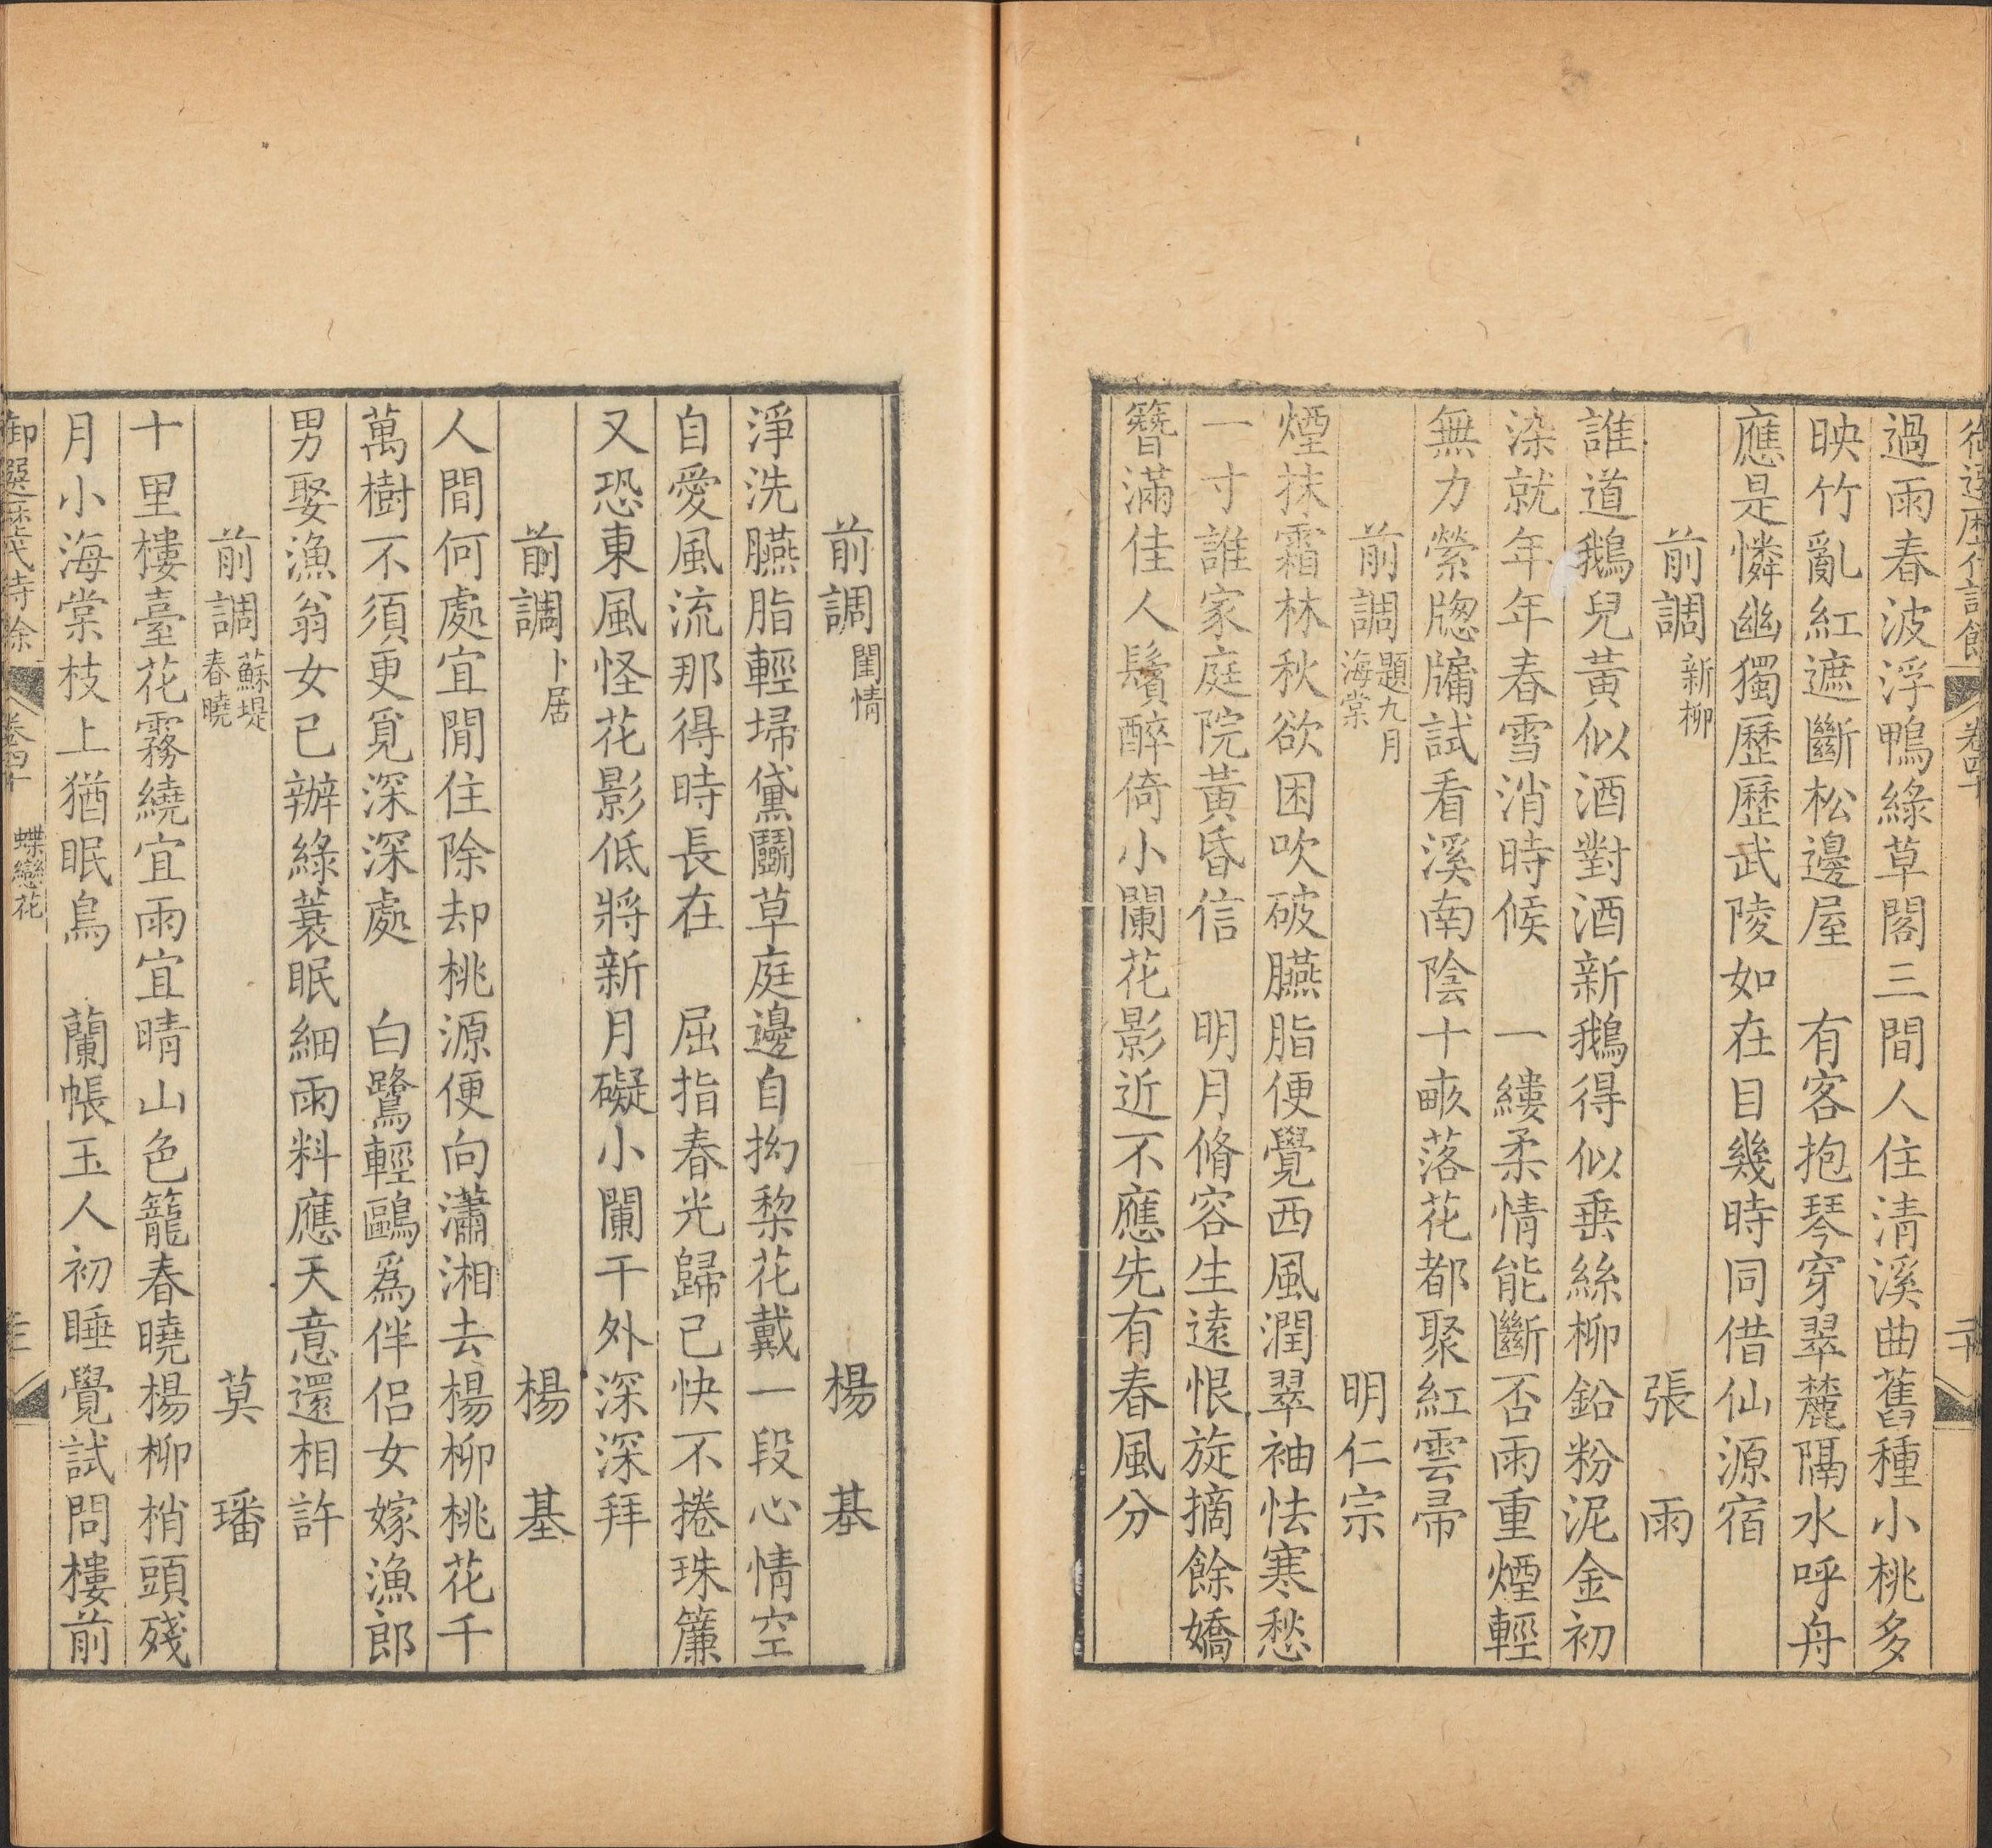 御選歷代詩餘 卷四十 二十
過雨春波浮鴨綠草閣三間人住清溪曲舊種小桃多
映竹亂紅遮斷松邊屋　有客抱琴穿翠麓隔水呼舟
應是憐幽獨歷歷武陵如在目幾時同借仙源宿
前調 新柳 張雨
誰道鵝兒黃似酒對酒新鵝得似垂絲柳鉛粉泥金初
染就年年春雪消時候　一縷柔情能斷否雨重煙輕
無力縈牕牖試看溪南陰十畝落花都聚紅雲帚
前調 題九月海棠 明仁宗
煙抹霜林秋欲困吹破臙脂便覺西風潤翠袖怯寒愁
一寸誰家庭院黃昏信　明月脩容生遠恨旋摘餘嬌
簪滿佳人鬢醉倚小闌花影近不應先有春風分
前調 閨情 楊基
淨洗臙脂輕埽黛鬬草庭邊自拗棃花戴一段心情空
自愛風流那得時長在　屈指春光歸已快不捲珠簾
又恐東風怪花影低將新月礙小闌干外深深拜
前調 卜居 楊基
人間何處宜閒住除却桃源便向瀟湘去楊柳桃花千
萬樹不須更覓深深處　白鷺輕鷗爲伴侶女嫁漁郎
男娶漁翁女已辦綠蓑眠細雨料應天意還相許
前調 蘇堤春曉 莫璠
十里樓臺花霧繞宜雨宜晴山色籠春曉楊柳梢頭殘
月小海棠枝上猶眠鳥　蘭帳玉人初睡覺試問樓前
御選歷代詩餘 卷四十 蝶戀花